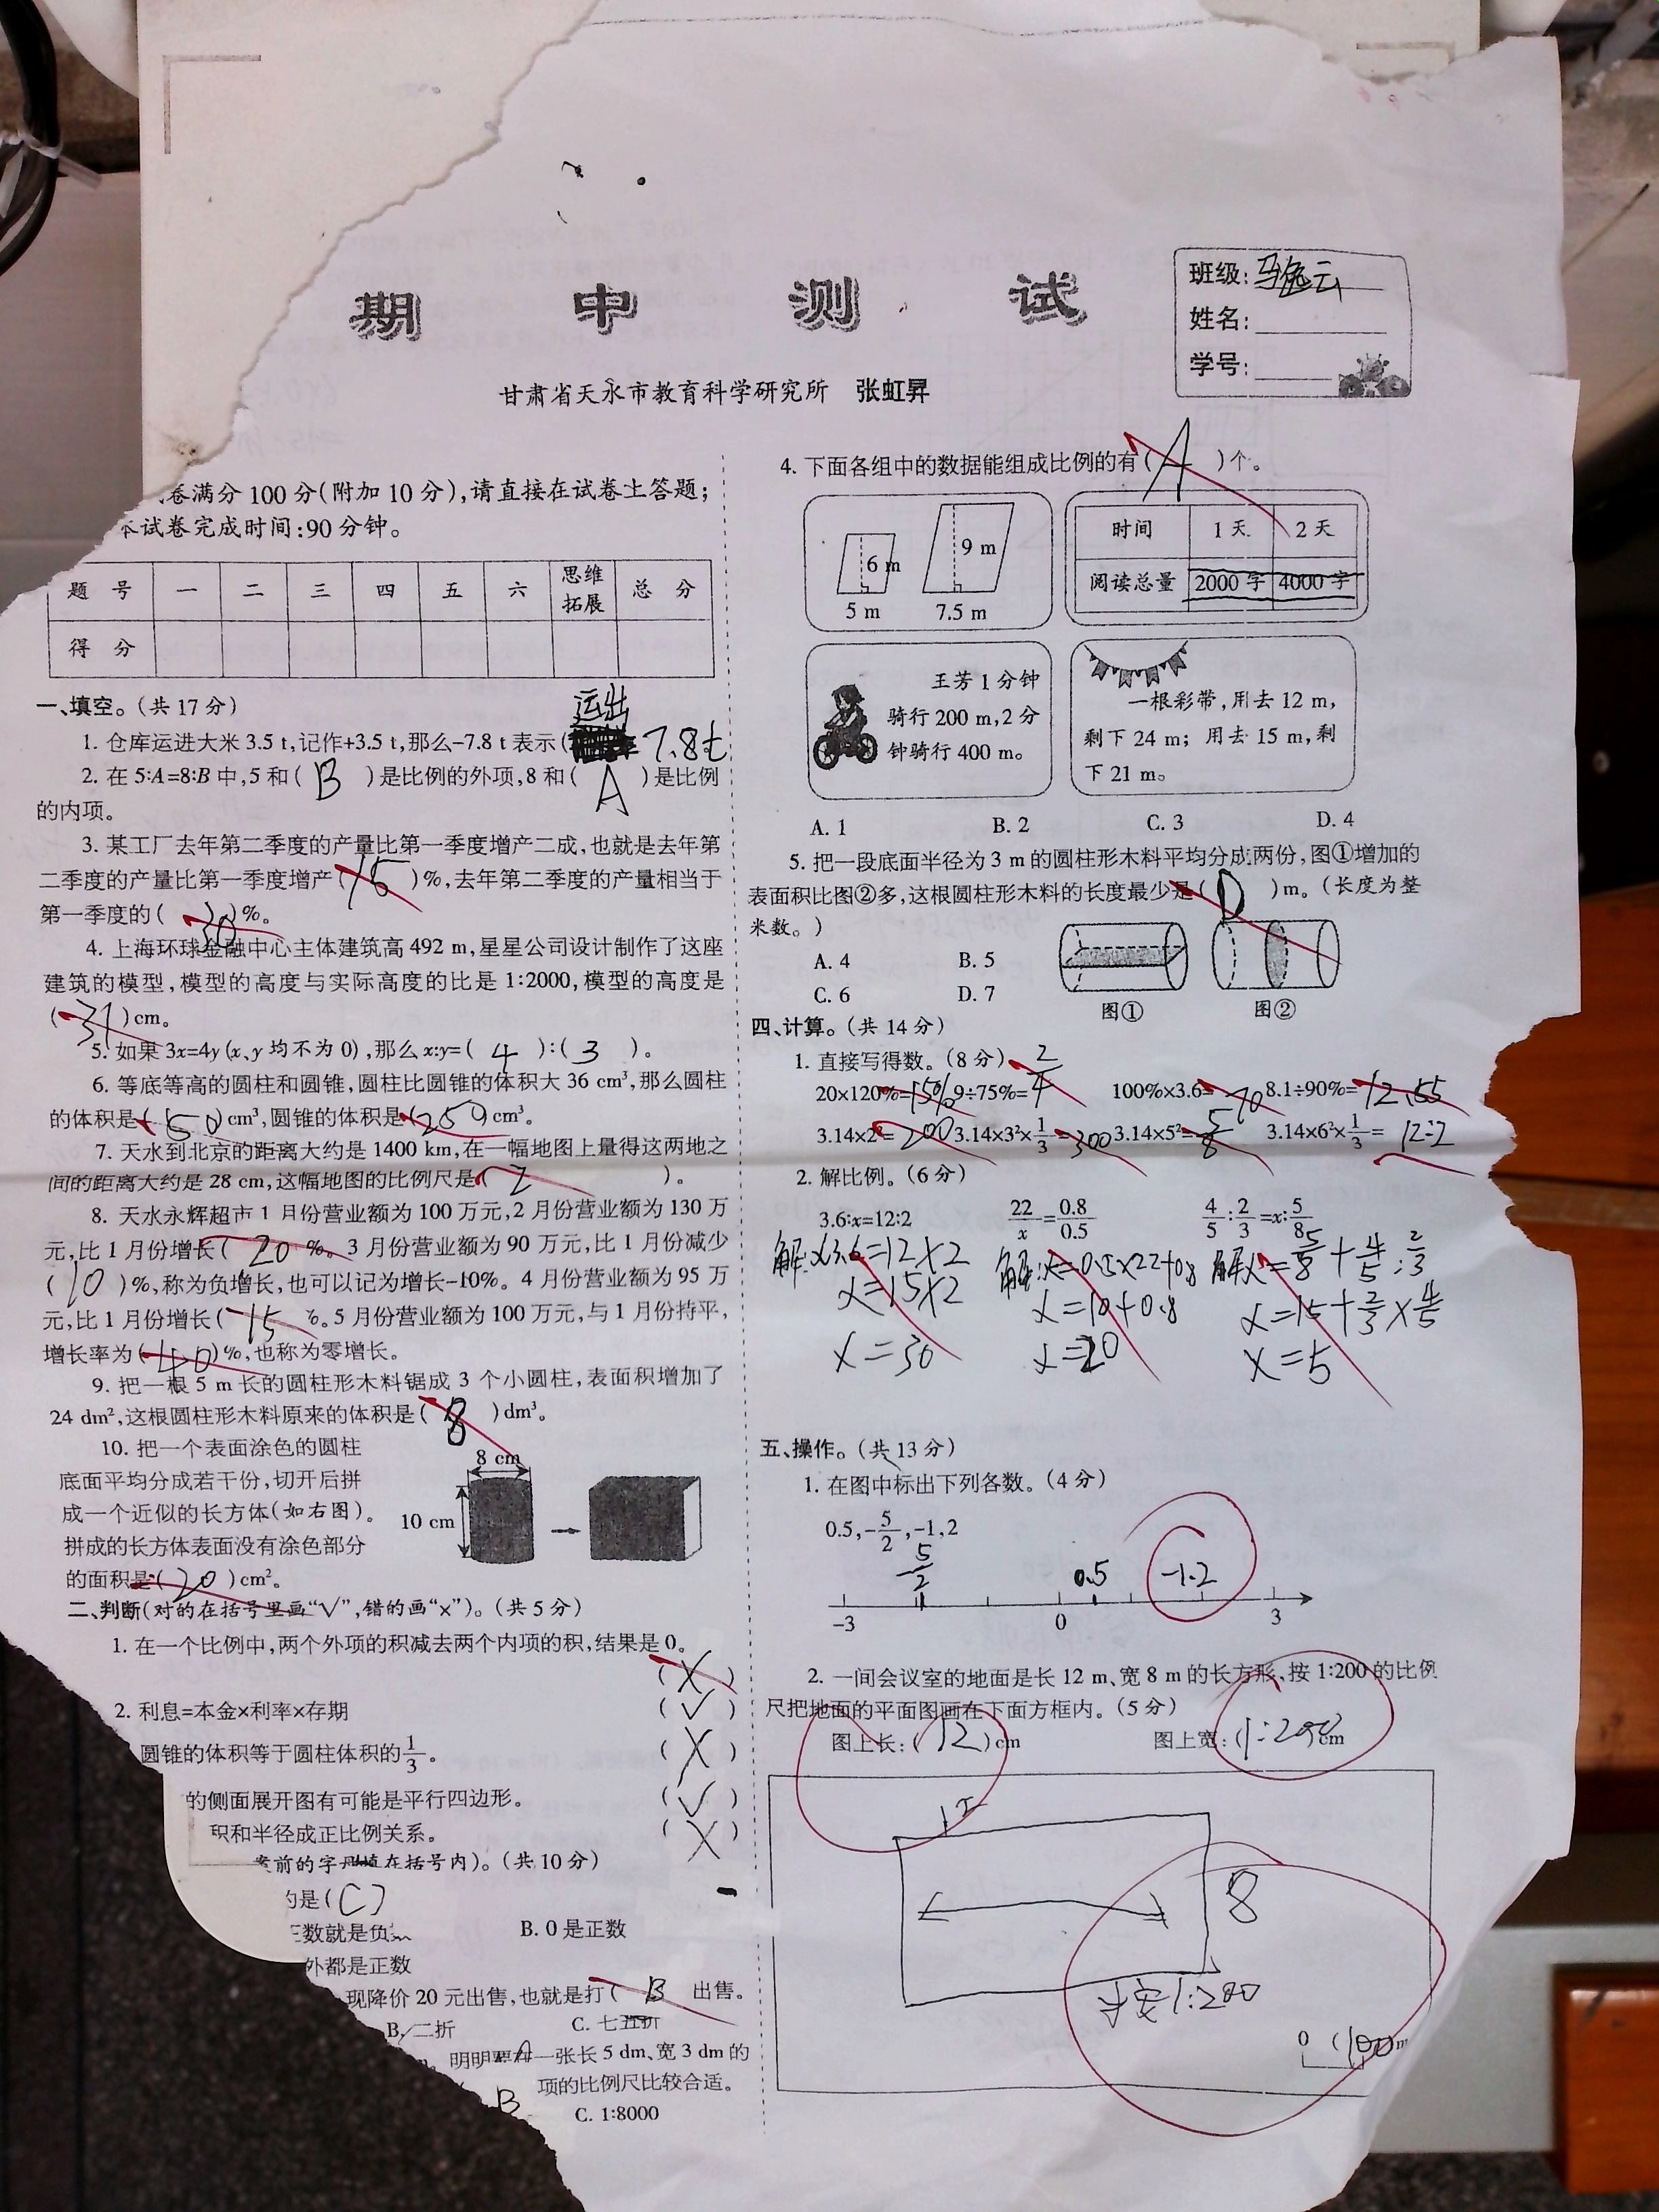 期中测试
班级:马逸云
姓名:
学号:
甘肃省天水市教育科学研究所 张虹昇
卷满分100分(附加10分),请直接在试卷上答题;
本试卷完成时间:90分钟。
题号 一 二 三 四 五 六 思维拓展 总分
得分
一、填空。(共17分)
1. 仓库运进大米3.5 t,记作+3.5 t,那么-7.8 t表示(运出7.8t
2. 在5:A=8:B中,5和( B )是比例的外项,8和( A )是比例
的内项。
3. 某工厂去年第二季度的产量比第一季度增产二成,也就是去年第
二季度的产量比第一季度增产( 15 )%,去年第二季度的产量相当于
第一季度的( 30 )%。
4. 上海环球金融中心主体建筑高492 m,星星公司设计制作了这座
建筑的模型,模型的高度与实际高度的比是1:2000,模型的高度是
( 31 )cm。
5. 如果3x=4y(x、y均不为0),那么x:y=( 4 ):( 3 )。
6. 等底等高的圆柱和圆锥,圆柱比圆锥的体积大36 cm³,那么圆柱
的体积是( 50 )cm³,圆锥的体积是( 250 )cm³。
7. 天水到北京的距离大约是1400 km,在一幅地图上量得这两地之
间的距离大约是28 cm,这幅地图的比例尺是( 2 )。
8. 天水永辉超市1月份营业额为100万元,2月份营业额为130万
元,比1月份增长( 20 %。3月份营业额为90万元,比1月份减少
( 10 )%,称为负增长,也可以记为增长-10%。4月份营业额为95万
元,比1月份增长( -15 %。5月份营业额为100万元,与1月份持平,
增长率为( 40 )%,也称为零增长。
9. 把一根5 m长的圆柱形木料锯成3个小圆柱,表面积增加了
24 dm²,这根圆柱形木料原来的体积是( 8 )dm³。
10. 把一个表面涂色的圆柱
底面平均分成若干份,切开后拼
成一个近似的长方体(如右图)。
拼成的长方体表面没有涂色部分
的面积是( 20 )cm²。
8 cm
10 cm
二、判断(对的在括号里画“√”,错的画“×”)。(共5分)
1. 在一个比例中,两个外项的积减去两个内项的积,结果是0。
( X )
2. 利息=本金×利率×存期 ( √ )
圆锥的体积等于圆柱体积的1/3。 ( X )
的侧面展开图有可能是平行四边形。 ( √ )
积和半径成正比例关系。 ( X )
案前的字母填在括号内)。(共10分)
的是( C )
数就是负 B. 0是正数
外都是正数
现降价20元出售,也就是打( B 出售。
B. 二折 C. 七五折
明明要在一张长5 dm、宽3 dm的
B 项的比例尺比较合适。
C. 1:8000
4. 下面各组中的数据能组成比例的有( A )个。
6 m 9 m
5 m 7.5 m
时间 1天 2天
阅读总量 2000字 4000字
王芳1分钟
骑行200 m,2分
钟骑行400 m。
一根彩带,用去12 m,
剩下24 m;用去15 m,剩
下21 m。
A. 1 B. 2 C. 3 D. 4
5. 把一段底面半径为3 m的圆柱形木料平均分成两份,图①增加的
表面积比图②多,这根圆柱形木料的长度最少是( D )m。(长度为整
米数。)
A. 4 B. 5
C. 6 D. 7
图① 图②
四、计算。(共14分)
1. 直接写得数。(8分)
20×120%=15% 9÷75%=2/4 100%×3.6=70 8.1÷90%=12.55
3.14×2²=200 3.14×3²×1/3=300 3.14×5²=5/8 3.14×6²×1/3=12÷2
2. 解比例。(6分)
3.6:x=12:2 22/x=0.8/0.5 4/5:2/3=x:5/8
解:x3.6=12×2 解:x=0.5×22+0.8 解x=5/8+4/5:2/3
x=15×2 x=10+0.8 x=15+2/3×4/5
x=30 x=20 x=5
五、操作。(共13分)
1. 在图中标出下列各数。(4分)
0.5,-5/2,-1,2
-5/2 0.5 -1.2
-3 0 3
2. 一间会议室的地面是长12 m、宽8 m的长方形、按1:200的比例
尺把地面的平面图画在下面方框内。(5分)
图上长:( 12 )cm 图上宽:(1:200)cm
8
1:200
0 100m